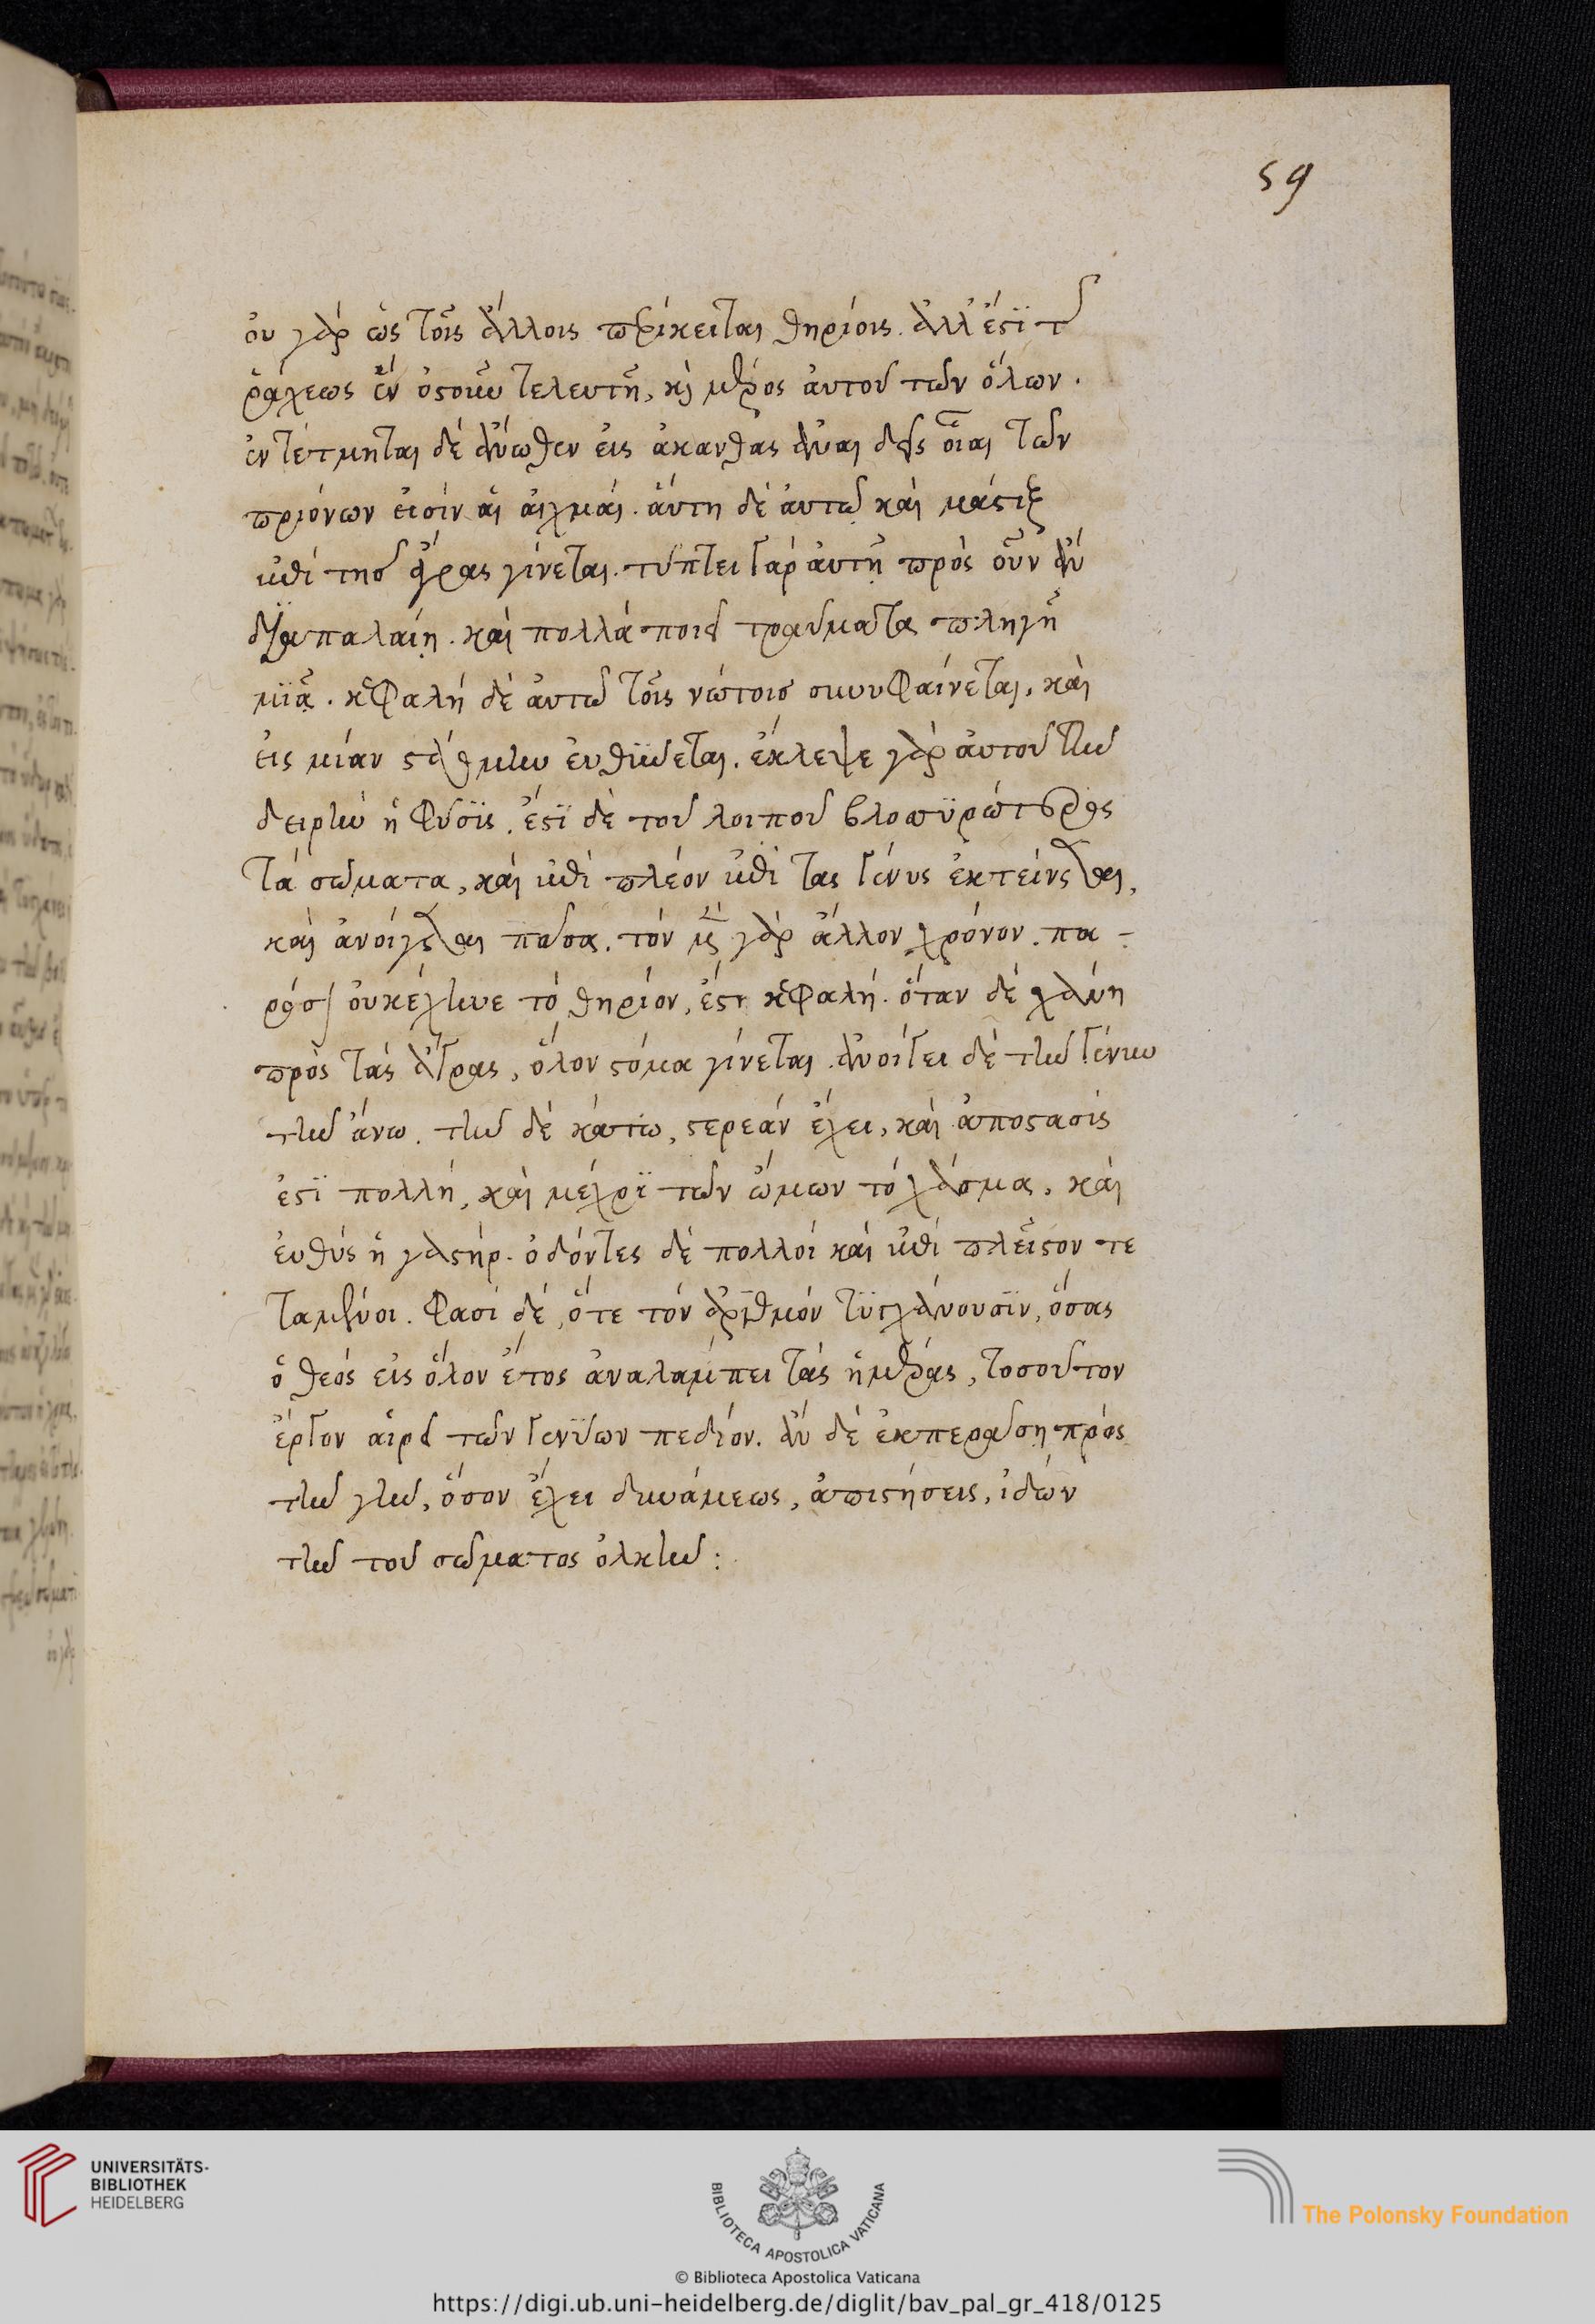 59
οὐ γὰρ ὡς τοῖς ἄλλοις περίκειται θηρίοις. ἀλλ' ἔστι τῆς
ῥάχεως ἓν ὀστοῦν τελευτὴ, καὶ μέρος αὐτοῦ τῶν ὅλων.
ἐντέτμηται δὲ ἄνωθεν εἰς ἀκάνθας ἀναιδεῖς οἷαι τῶν
πριόνων εἰσὶν αἱ αἰχμαί. αὕτη δὲ αὐτῷ καὶ μάστιξ
ἐπὶ τῆς ἄγρας γίνεται. τύπτει γὰρ αὐτῇ πρὸς οὓς ἂν
διαπαλαίῃ. καὶ πολλὰ ποιεῖ τραύματα πληγῇ
μιᾷ. κεφαλὴ δὲ αὐτῷ τοῖς νώτοις συνυφαίνεται, καὶ
εἰς μίαν στάθμην εὐθύνεται. ἔκλεψε γὰρ αὐτοῦ τὴν
δειρὴν ἡ φύσις. ἔστι δὲ τοῦ λοιποῦ βλοσυρώτερος
τὰ σώματα, καὶ ἐπὶ πλέον ἐπὶ τὰς γένυς ἐκτείνεσθαι,
καὶ ἀνοίγεσθαι πᾶσα. τὸν μὲν γὰρ ἄλλον χρόνον. πα-
ρόσον οὐ κέχηνε τὸ θηρίον, ἔστι κεφαλή. ὅταν δὲ χάνῃ
πρὸς τὰς ἄγρας, ὅλον στόμα γίνεται. ἀνοίγει δὲ τὴν γένυν
τὴν ἄνω. τὴν δὲ κάτω, στερεὰν ἔχει, καὶ ἀπόστασίς
ἐστι πολλή, καὶ μέχρι τῶν ὤμων τὸ χάσμα, καὶ
εὐθὺς ἡ γαστήρ. ὀδόντες δὲ πολλοὶ καὶ ἐπὶ πλεῖστον τε
ταμένοι. φασὶ δέ, ὅτε τὸν ἀριθμὸν τυγχάνουσιν, ὅσας
ὁ θεὸς εἰς ὅλον ἔτος ἀναλάμπει τὰς ἡμέρας, τοσοῦτον
ἔργον αἱρεῖ τῶν γενύων πεδίον. ἂν δὲ ἐκπεράσῃ πρὸς
τὴν γῆν, ὅσον ἔχει δυνάμεως, ἀπιστήσεις, ἰδὼν
τὴν τοῦ σώματος ὁλκήν:
UNIVERSITÄTS-
BIBLIOTHEK
HEIDELBERG
BIBLIOTECA APOSTOLICA VATICANA
The Polonsky Foundation
© Biblioteca Apostolica Vaticana
https://digi.ub.uni-heidelberg.de/diglit/bav_pal_gr_418/0125